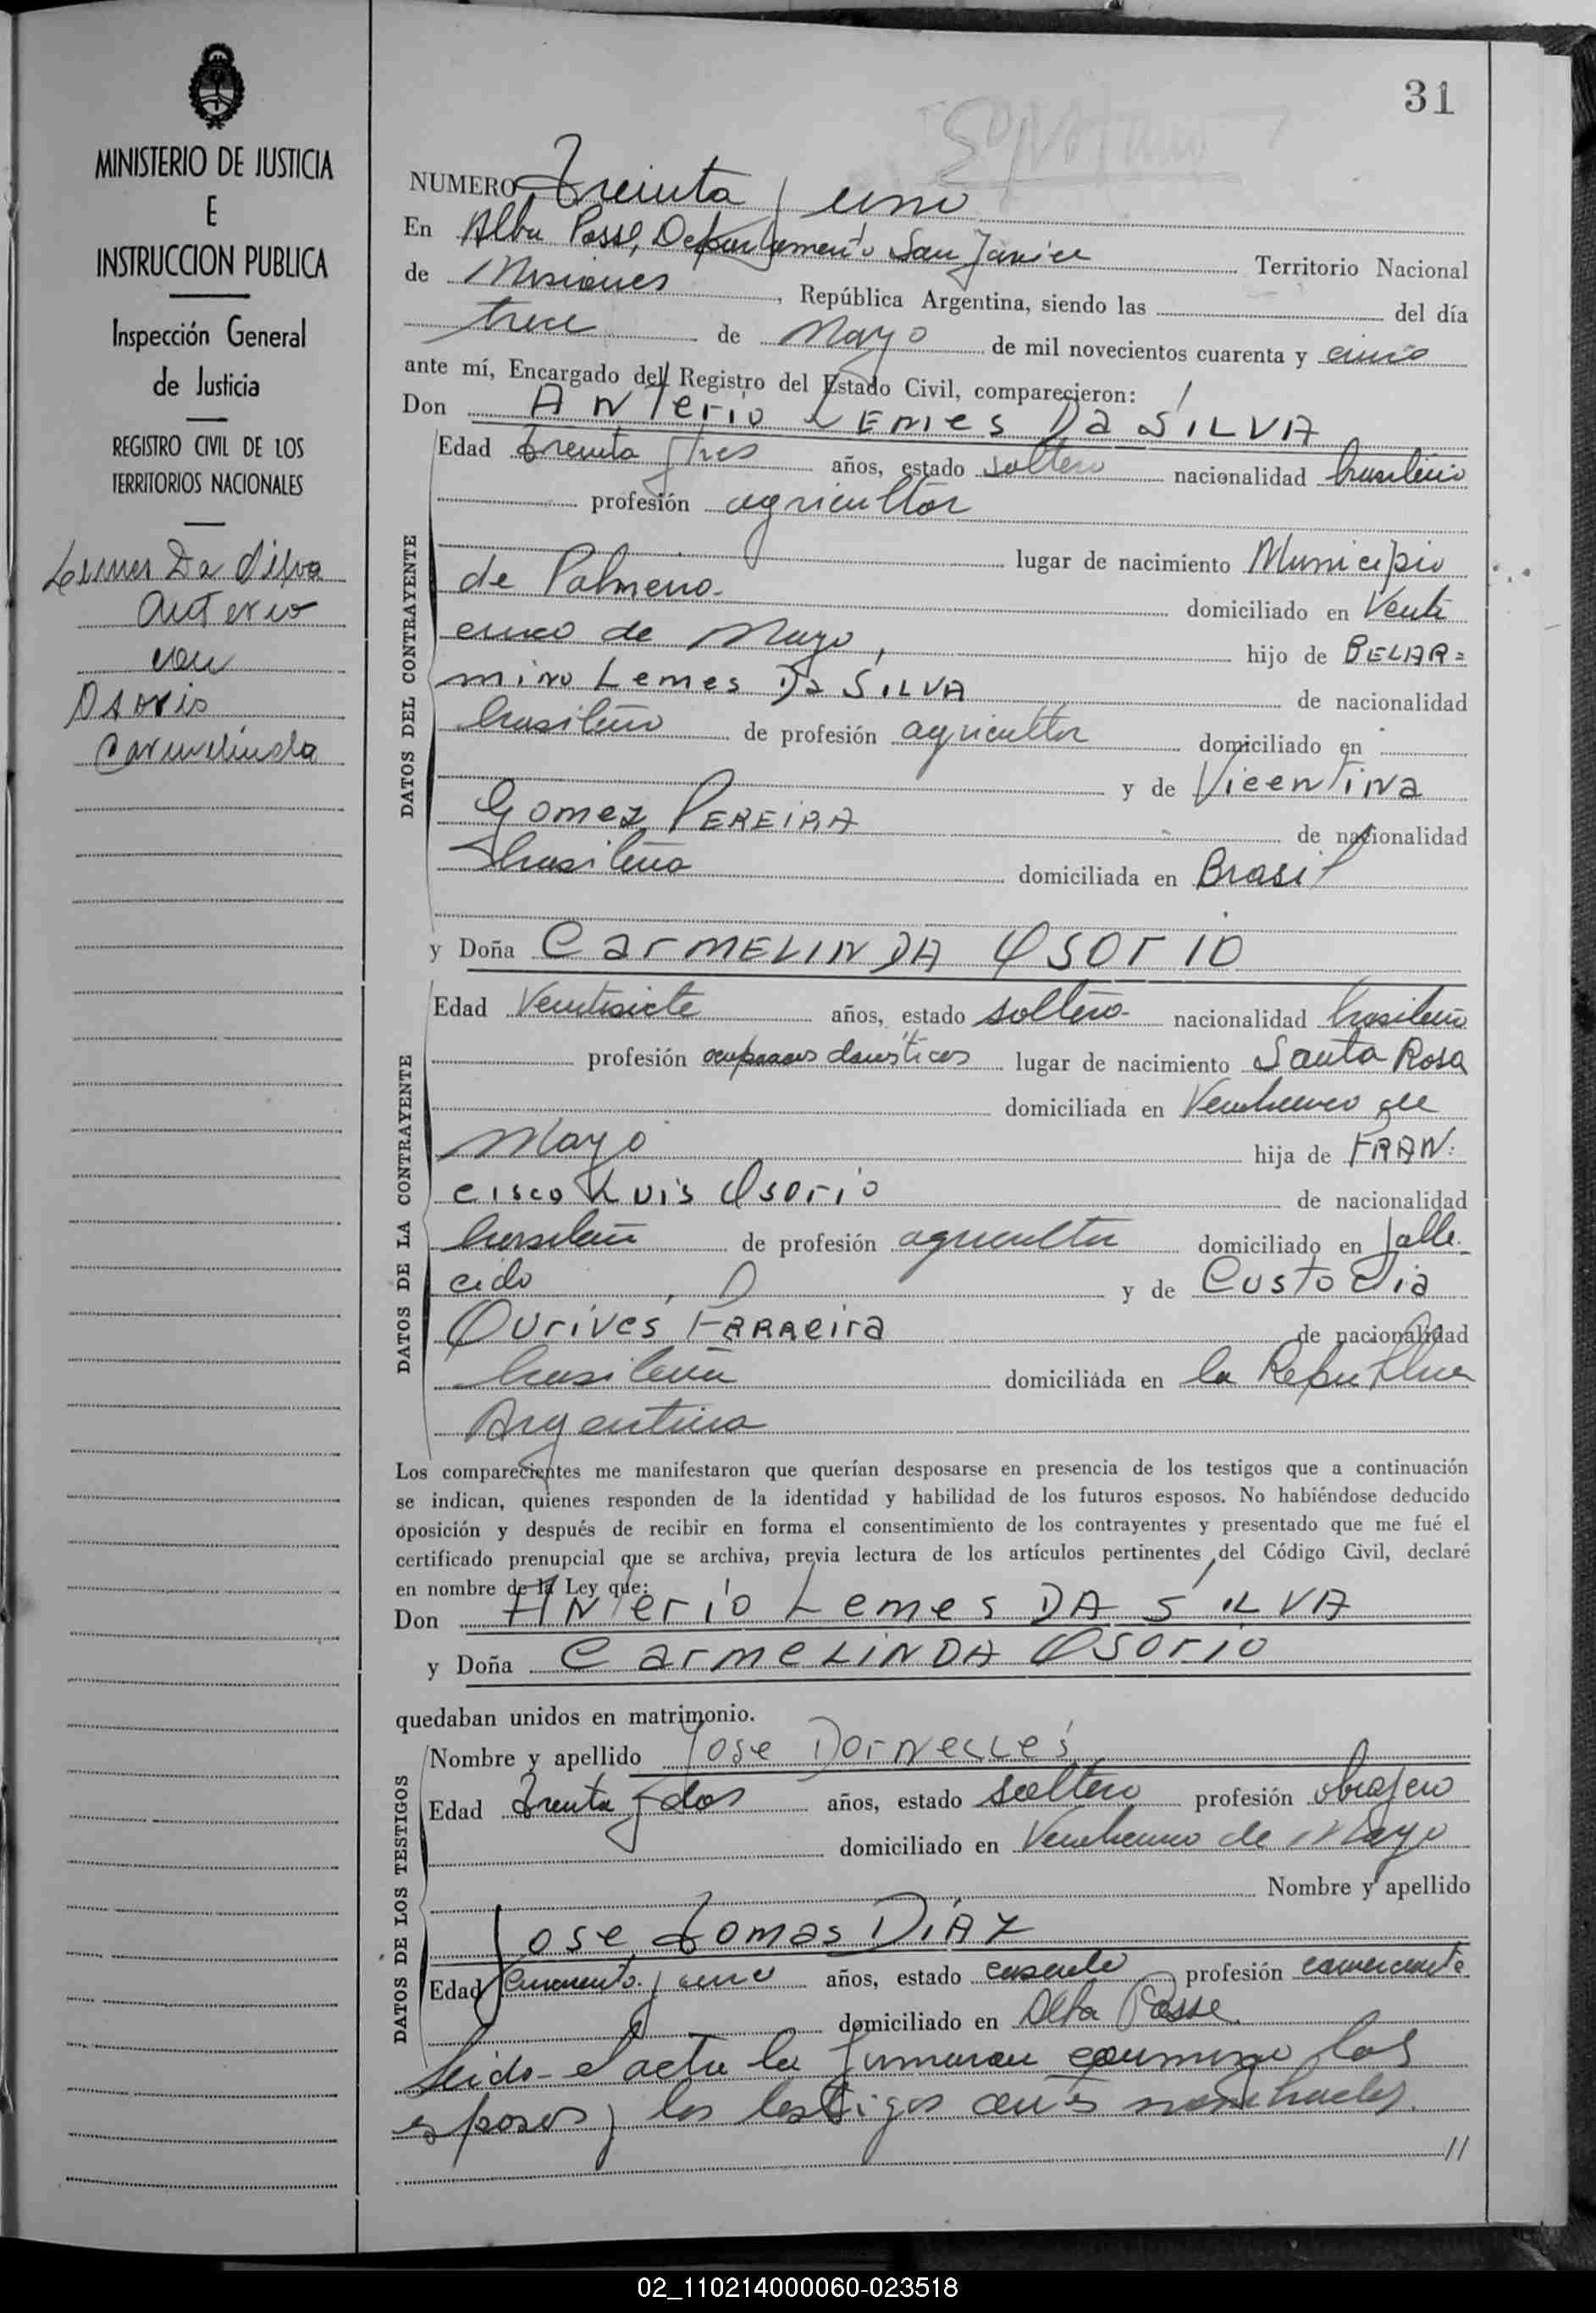 31
MINISTERIO DE JUSTICIA
E
INSTRUCCION PUBLICA
Inspección General
de Justicia
REGISTRO CIVIL DE LOS
TERRITORIOS NACIONALES
Lemes Da Silva
Anterio
con
Osorio
Carmelinda
NUMERO Treinta y uno
En Alba Posse, Departamento San Javier Territorio Nacional
de Misiones, República Argentina, siendo las del día
trece de Mayo de mil novecientos cuarenta y cinco
ante mí, Encargado del Registro del Estado Civil, comparecieron:
Don ANTerio LEMes Da SILVA
DATOS DEL CONTRAYENTE
Edad treinta y tres años, estado soltero nacionalidad brasileño
profesión agricultor
lugar de nacimiento Municipio
de Palmeno- domiciliado en Venti
cinco de Mayo, hijo de BELAR=
miNo Lemes Da SILVA de nacionalidad
brasileño de profesión agricultor domiciliado en
y de VicenTiNa
Gomez PEREiRA de nacionalidad
brasileña domiciliada en Brasil
y Doña CarmELINDA OSOrIO
DATOS DE LA CONTRAYENTE
Edad Ventisiete años, estado soltera- nacionalidad brasileña
profesión ocupaciones domésticas lugar de nacimiento Santa Rosa
domiciliada en Venticinco de
Mayo hija de FRAN:
cisco Luis Osorio de nacionalidad
brasileño de profesión agricultor domiciliado en falle-
cido, y de Custodia
Ourives FARReira de nacionalidad
brasileña domiciliada en la República
Argentina
Los comparecientes me manifestaron que querían desposarse en presencia de los testigos que a continuación
se indican, quienes responden de la identidad y habilidad de los futuros esposos. No habiéndose deducido
oposición y después de recibir en forma el consentimiento de los contrayentes y presentado que me fué el
certificado prenupcial que se archiva, previa lectura de los artículos pertinentes del Código Civil, declaré
en nombre de la Ley que:
Don ANTerio Lemes DA SILVA
y Doña CarmeLiNDA Osorio
quedaban unidos en matrimonio.
DATOS DE LOS TESTIGOS
Nombre y apellido Jose DorNeLLes
Edad treinta y dos años, estado soltero profesión obrajero
domiciliado en Venticinco de Mayo
Nombre y apellido
Jose Tomas DiAZ
Edad Cincuenta y uno años, estado casado profesión comerciante
domiciliado en Alba Posse.
Leido el acta la firmaron conmigo los
esposos y los testigos antes nombrados.
//
02_110214000060-023518